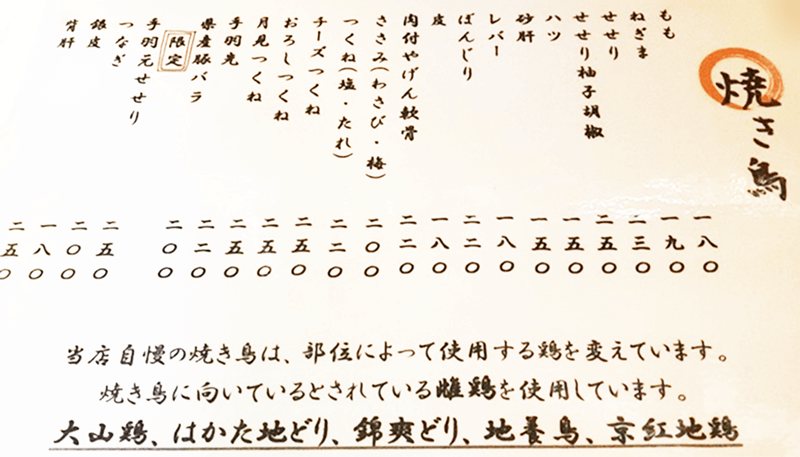 焼き鳥
もも
ねぎま
せせり
せせり柚子胡椒
ハツ
砂肝
レバー
ぼんじり
皮
肉付やげん軟骨
ささみ(わさび・梅)
つくね(塩・たれ)
チーズつくね
おろしつくね
月見つくね
手羽先
県産豚バラ
限定
手羽元せせり
つなぎ
銀皮
背肝
一八〇
一九〇
二三〇
二五〇
一五〇
一五〇
一八〇
二二〇
一八〇
二二〇
二〇〇
二二〇
二五〇
二五〇
二五〇
二二〇
二〇〇
二五〇
二〇〇
一八〇
二五〇
当店自慢の焼き鳥は、部位によって使用する鶏を変えています。
焼き鳥に向いているとされている雌鶏を使用しています。
大山鶏、はかた地どり、錦爽どり、地養鳥、京紅地鶏